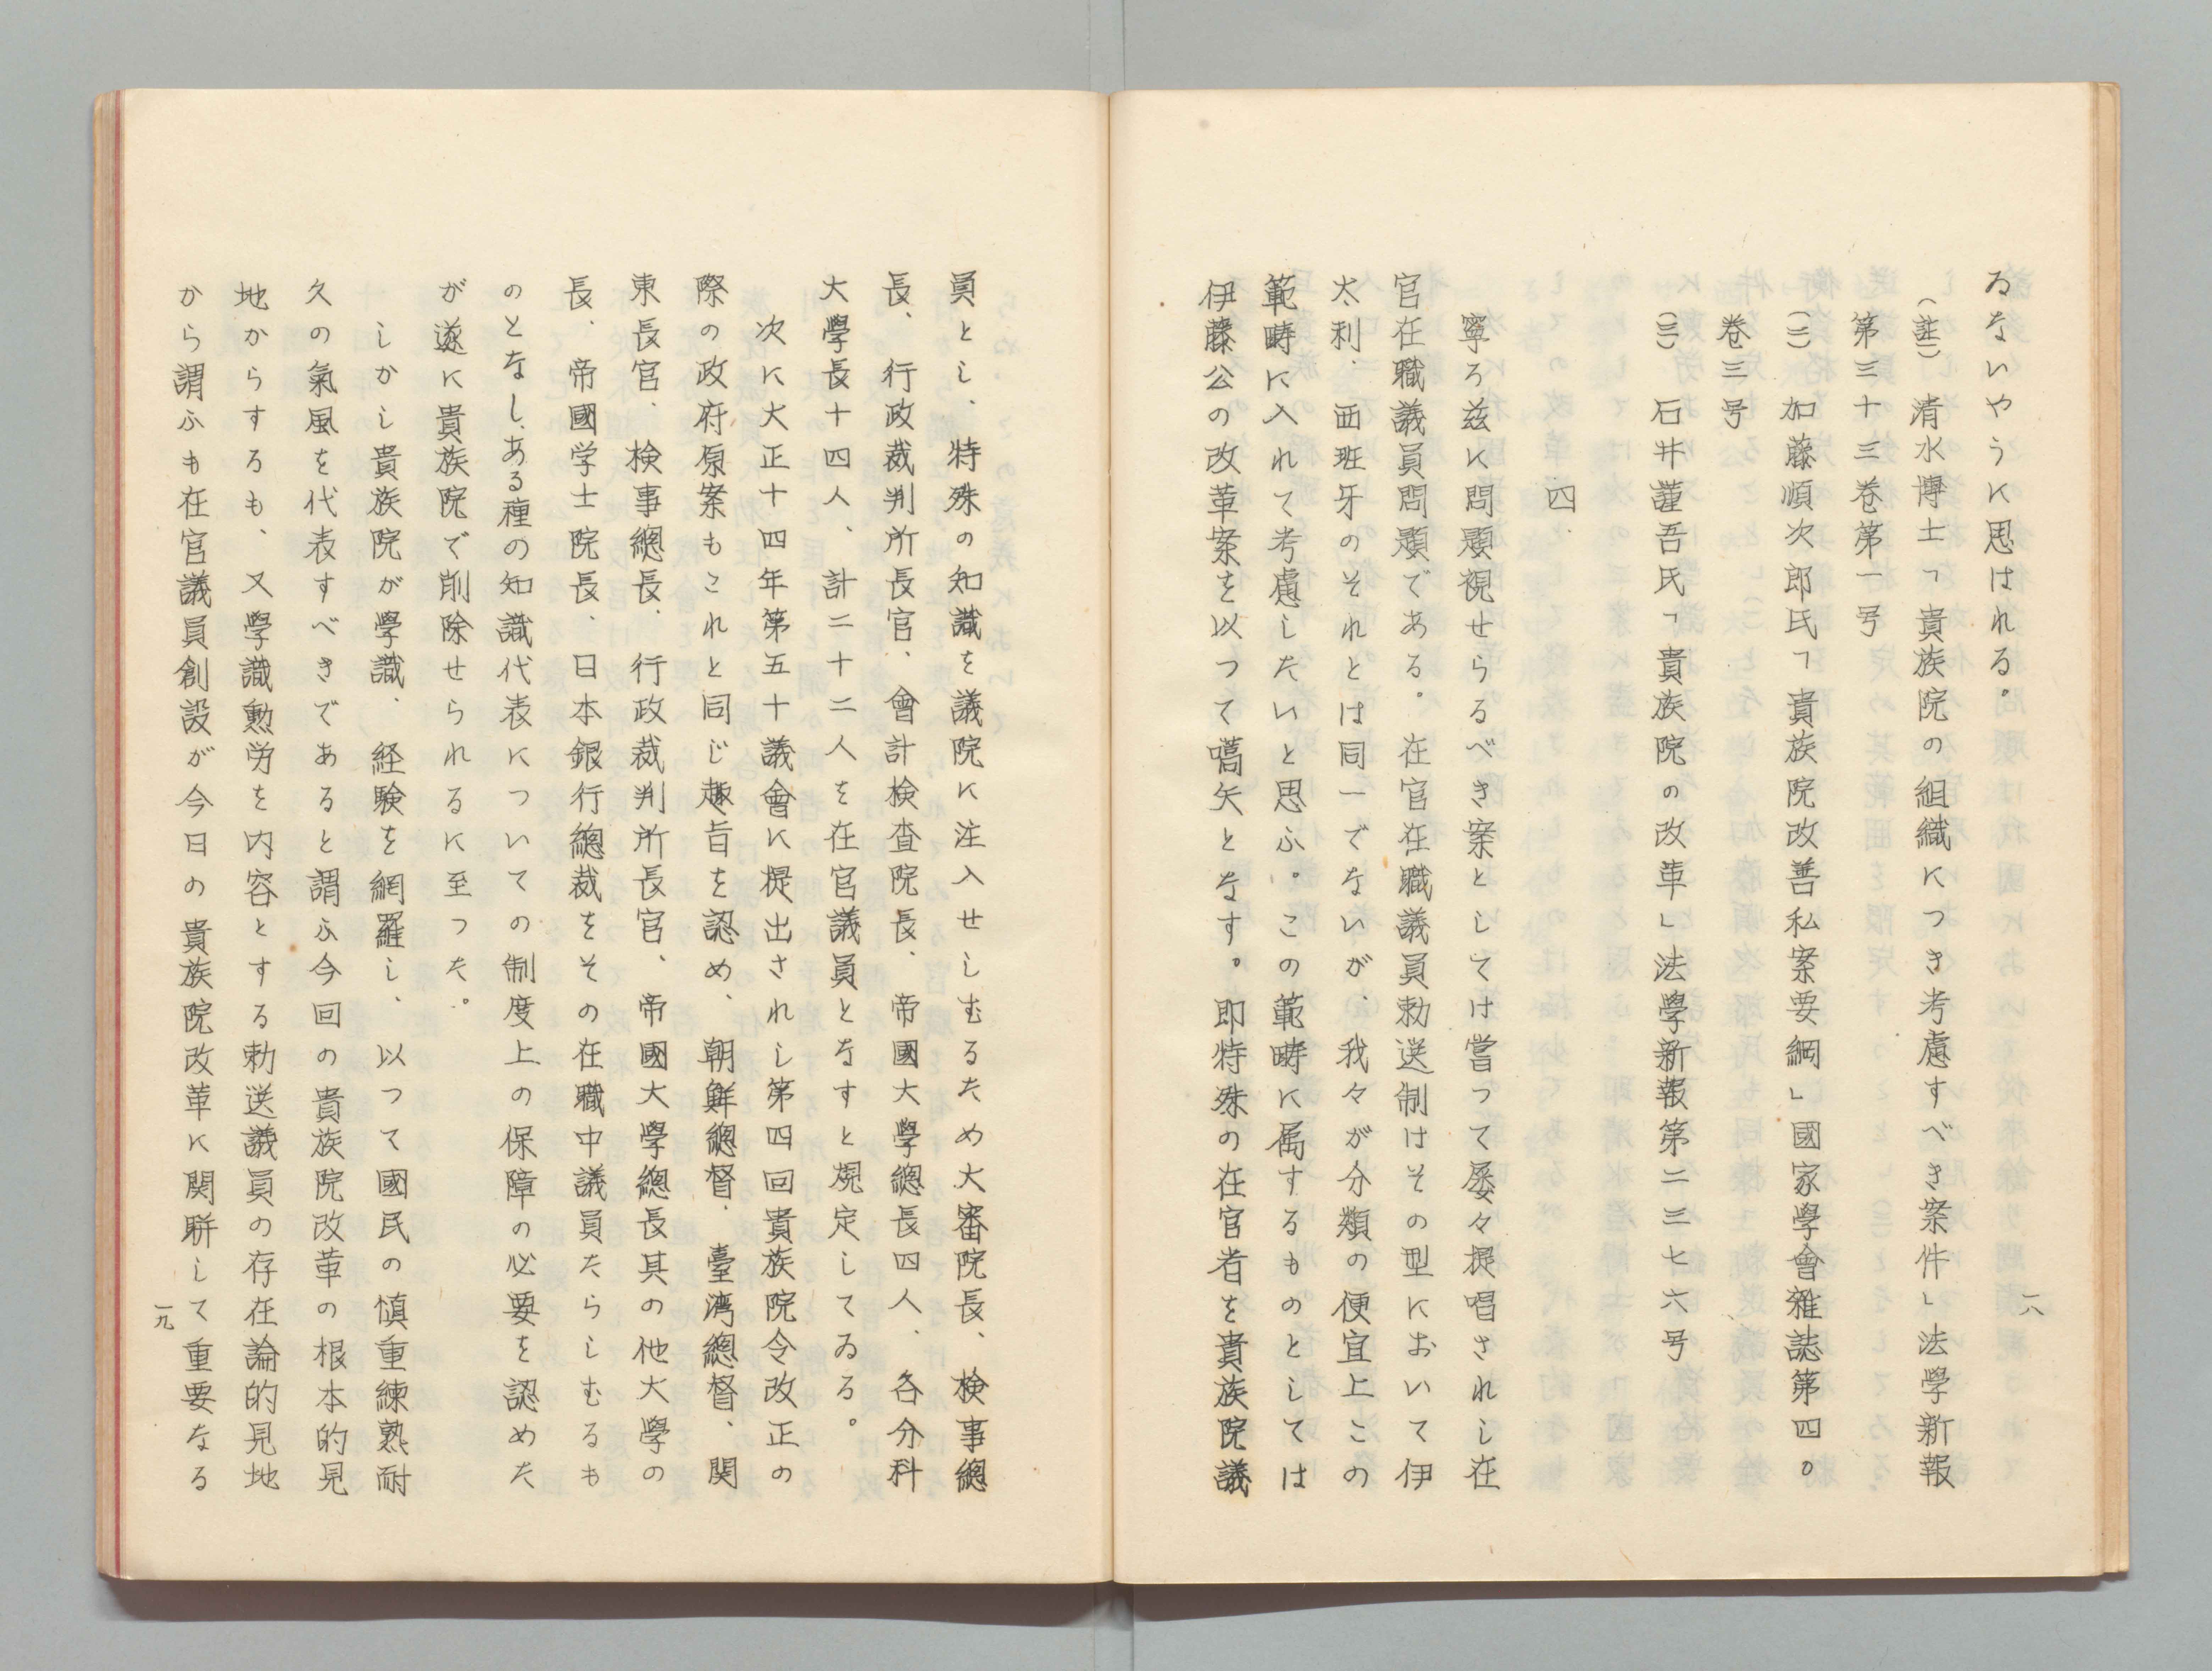 ゐないやうに思はれる。
(註一) 清水博士「貴族院の組織につき考慮すべき案件」法学新報
第三十三巻第一号
(二) 加藤順次郎氏「貴族院改善私案要綱」國家學會雑誌第四〇
巻三号
(三) 石井謹吾氏「貴族院の改革」法學新報第二三七六号
四、
寧ろ茲に問題視せらるべき案としては嘗つて屡々提唱されし在
官在職議員問題である。在官在職議員勅送制はその型において伊
太利、西班牙のそれとは同一でないが、我々が分類の便宜上この
範疇に入れて考慮したいと思ふ。この範疇に属するものとしては
伊藤公の改革案を以つて嚆矢となす。即特殊の在官者を貴族院議
一八
員とし、特殊の知識を議院に注入せしむるため大審院長、検事總
長、行政裁判所長官、會計検査院長、帝國大學總長四人、各分科
大學長十四人、計二十二人を在官議員となすと規定してゐる。
次に大正十四年第五十議會に提出されし第四回貴族院令改正の
際の政府原案もこれと同じ趣旨を認め、朝鮮總督、臺湾總督、関
東長官、検事總長、行政裁判所長官、帝國大學總長其の他大學の
長、帝國学士院長、日本銀行總裁をその在職中議員たらしむるも
のとなし、ある種の知識代表についての制度上の保障の必要を認めた
が遂に貴族院で削除せられるに至つた。
しかし貴族院が學識、経験を網羅し、以つて國民の慎重練熟耐
久の氣風を代表すべきであると謂ふ今回の貴族院改革の根本的見
地からするも、又學識勲労を内容とする勅送議員の存在論的見地
から謂ふも在官議員創設が今日の貴族院改革に関聨して重要なる
一九